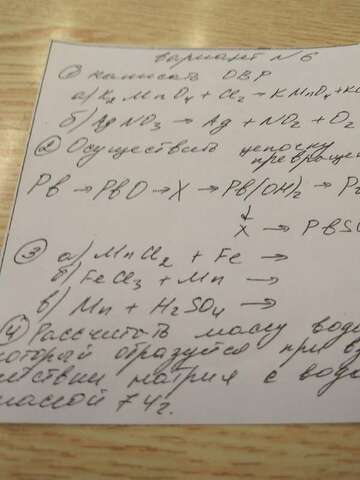 вариант N 6
① написать ОВР
а) K₂MnO₄ + Cl₂ → KMnO₄ + KC
б) AgNO₃ → Ag + NO₂ + O₂
② Осуществить цепочку
превращен
Pb → PbO → X → Pb(OH)₂ → P
↓
X → PbSO
③ а) MnCl₂ + Fe →
б) FeCl₃ + Mn →
в) Mn + H₂SO₄ →
④ Рассчитать массу водо
который образуется при в
действии натрия с водо
массой 7 4г.